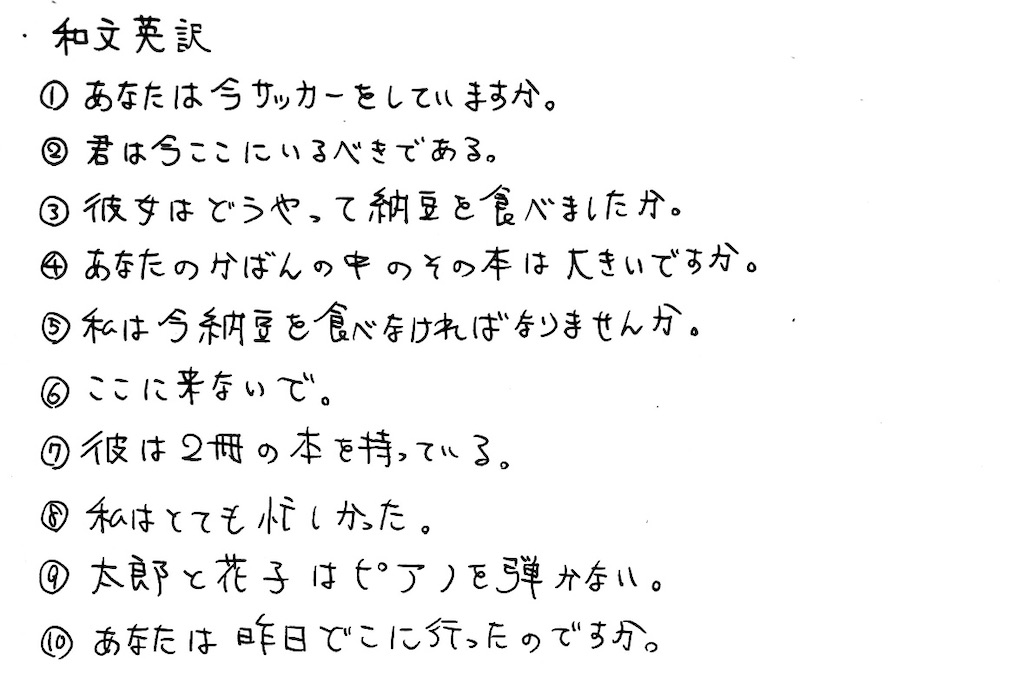 ・和文英訳
① あなたは今サッカーをしていますか。
② 君は今ここにいるべきである。
③ 彼女はどうやって納豆を食べましたか。
④ あなたのかばんの中のその本は大きいですか。
⑤ 私は今納豆を食べなければなりませんか。
⑥ ここに来ないで。
⑦ 彼は2冊の本を持っている。
⑧ 私はとても忙しかった。
⑨ 太郎と花子はピアノを弾かない。
⑩ あなたは昨日どこに行ったのですか。